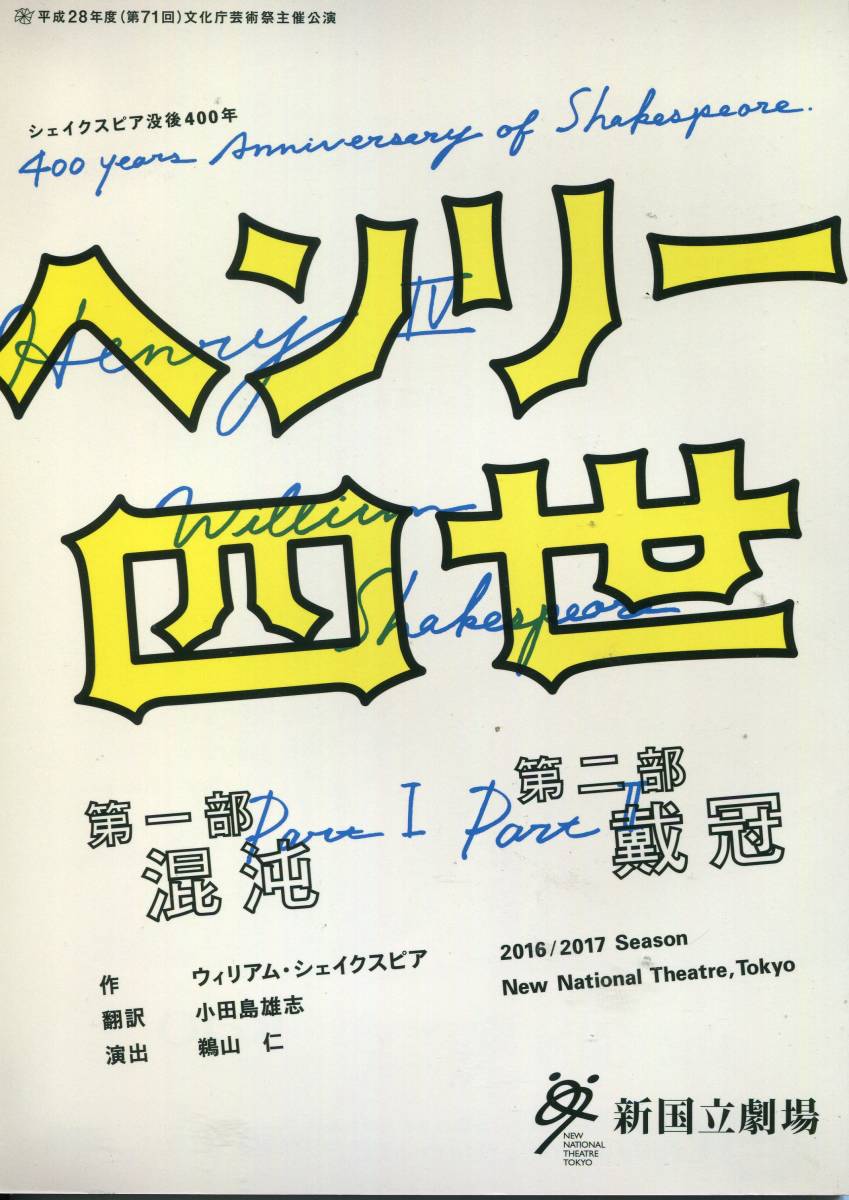 平成28年度(第71回)文化庁芸術祭主催公演
シェイクスピア没後400年
400 years Anniversary of Shakespeare.
ヘンリー
Henry IV
四世
William
Shakespeare
第一部
混沌
Part I
第二部
戴冠
Part II
作 ウィリアム・シェイクスピア
翻訳 小田島雄志
演出 鵜山 仁
2016/2017 Season
New National Theatre, Tokyo
NEW
NATIONAL
THEATRE
TOKYO
新国立劇場